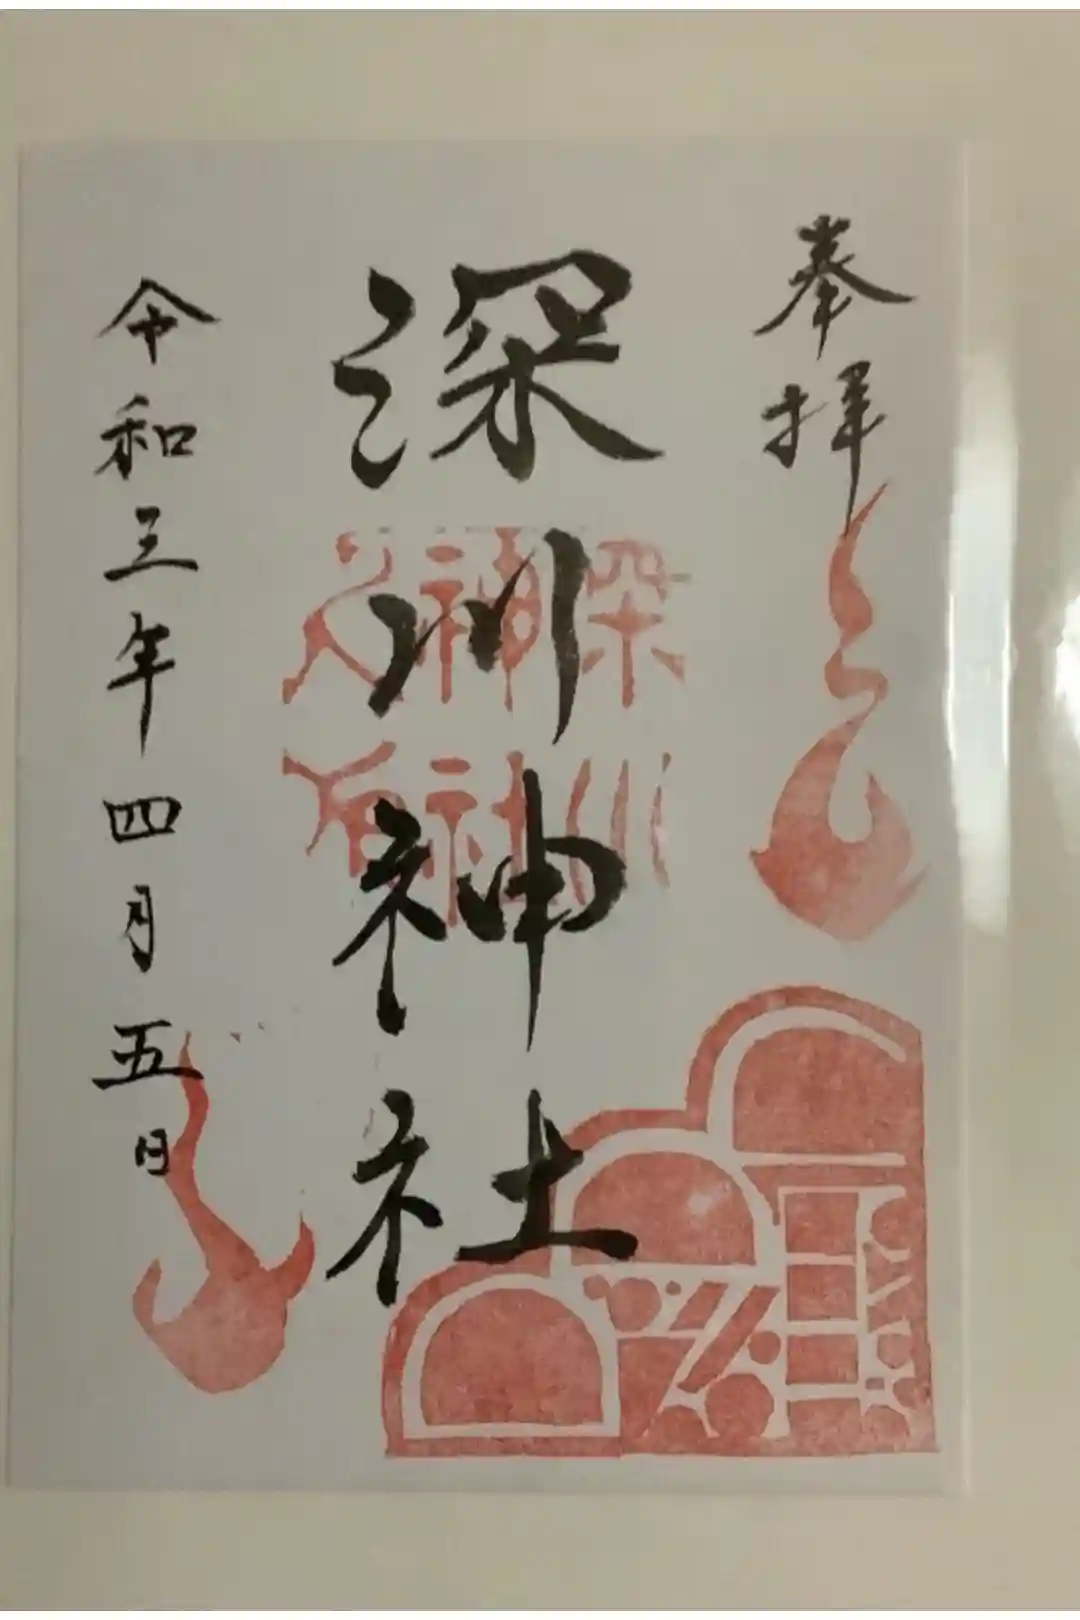 奉拝
深川神社
深川
神社
令和三年四月五日